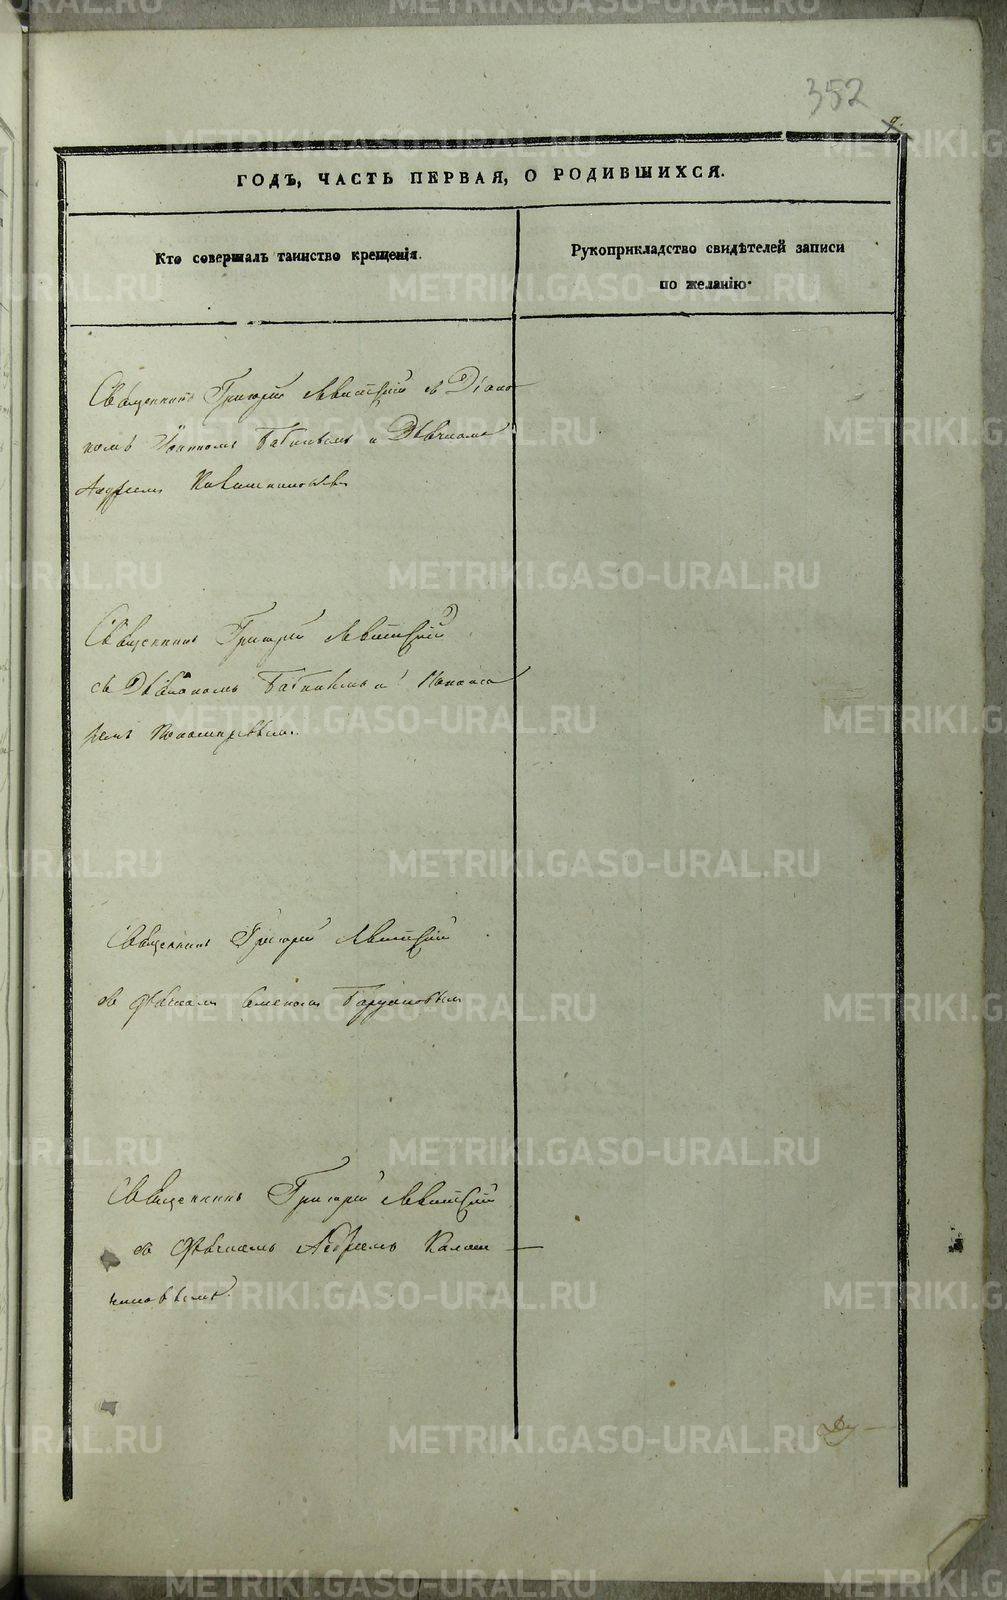 352
ГОДЪ, ЧАСТЬ ПЕРВАЯ, О РОДИВШИХСЯ.
Кто совершалъ таинство крещенія.
Рукоприкладство свидѣтелей записи
по желанію.
Священникъ Григорій Левитскій съ Діако
номъ Іоанномъ Бабинымъ и Дьячкомъ
Андреемъ
Священникъ Григорій Левитскій
съ Діакономъ Бабинымъ и Понома
ремъ
Священникъ Григорій Левитскій
съ Дьячкомъ Семеномъ
Священникъ Григорій Левитскій
съ Дьячкомъ Андреемъ Калаш
никовымъ.
METRIKI.GASO-URAL.RU